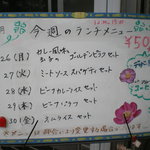 今週のランチメニュー
¥50
26(月) カレー風味
ゴールデンピラフセット
27(火) ミートソーススパゲティセット
28(水) ビーフカレーライスセット
29(木) ビーフピラフセット
30(金) オムライスセット
※メニューは都合により変更する場合